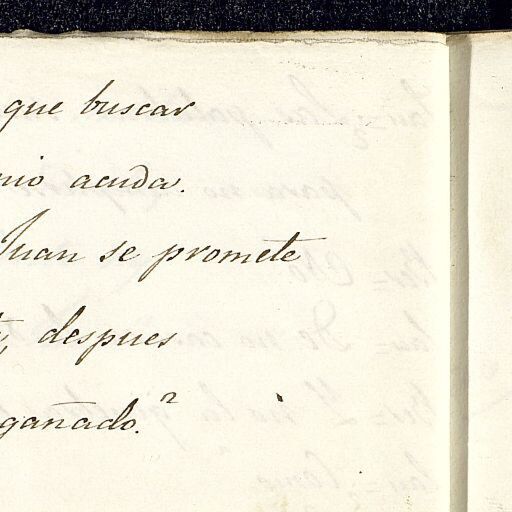 que buscar
nio acuda.
Juan se promete
despues
gañado.?